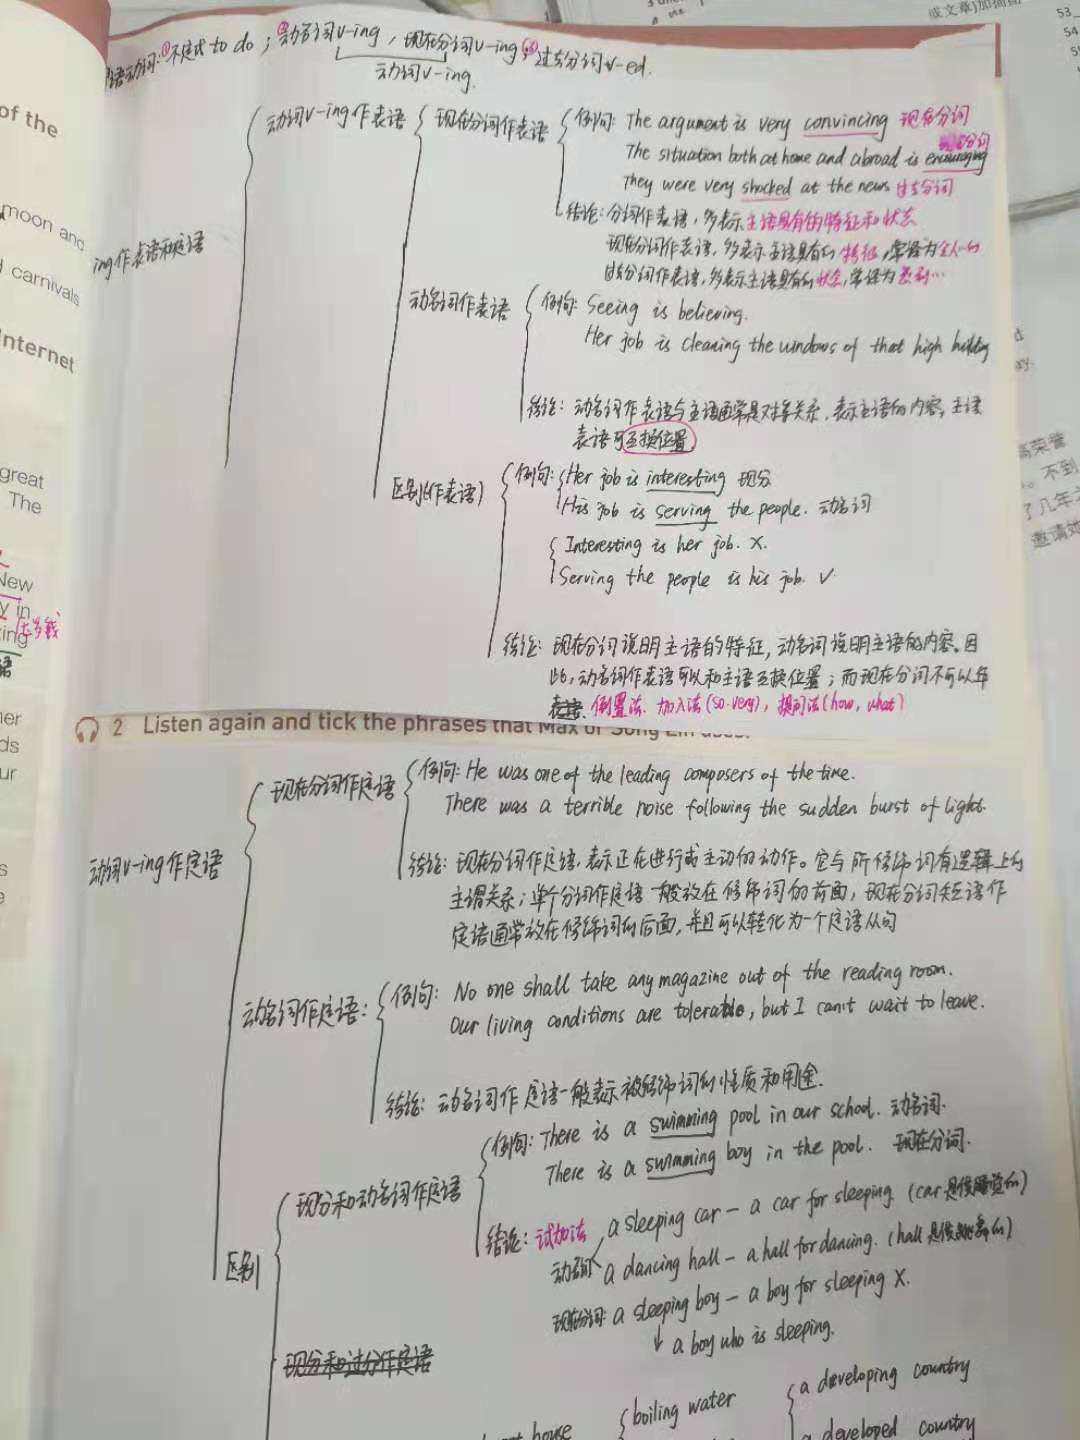 语动词:①不定式 to do ; ②动名词v-ing , 现在分词v-ing ; ③过去分词v-ed.
动词v-ing
ing作表语和定语
动词v-ing作表语
现在分词作表语
例句: The argument is very convincing 现在分词
The situation both at home and abroad is encouraging 现在分词
They were very shocked at the news 过去分词
结论: 分词作表语, 多表示主语具有的特征和状态
现在分词作表语, 多表示主语具有的特征, 常译为令人…的
过去分词作表语, 多表示主语具有的状态, 常译为感到…
动名词作表语
例句: Seeing is believing.
Her job is cleaning the windows of that high building
结论: 动名词作表语与主语通常是对等关系, 表示主语的内容, 主语
表语可互换位置.
区别(作表语)
例句: Her job is interesting 现分
His job is serving the people. 动名词
Interesting is her job. X.
Serving the people is his job. √
结论: 现在分词说明主语的特征, 动名词说明主语的内容。因
此, 动名词作表语可以和主语互换位置; 而现在分词不可以
倒置法. 加入法(so.very), 提问法(how, what)
2 Listen again and tick the phrases that Max or Song Lin uses.
动词v-ing作定语
现在分词作定语
例句: He was one of the leading composers of the time.
There was a terrible noise following the sudden burst of light.
结论: 现在分词作定语, 表示正在进行或主动的动作。它与所修饰词有逻辑上的
主谓关系; 单个分词作定语一般放在修饰词的前面, 现在分词短语作
定语通常放在修饰词的后面, 并且可以转化为一个定语从句
动名词作定语:
例句: No one shall take any magazine out of the reading room.
Our living conditions are tolerable, but I can't wait to leave.
结论: 动名词作定语一般表示被修饰词的性质和用途.
区别
现分和动名词作定语
例句: There is a swimming pool in our school. 动名词.
There is a swimming boy in the pool. 现在分词.
结论: 试加法
动名词
a sleeping car — a car for sleeping (car 是
a dancing hall — a hall for dancing. (hall 是
现在分词: a sleeping boy — a boy for sleeping X.
↓ a boy who is sleeping.
现分和过分作定语
boiling water
a developing country
house
a developed country
of the
moon and
carnivals
Internet
great
The
New
y in
king
her
ds
ur
或文章)加插图
53
54
高荣誉
。不到
了几年
邀请她